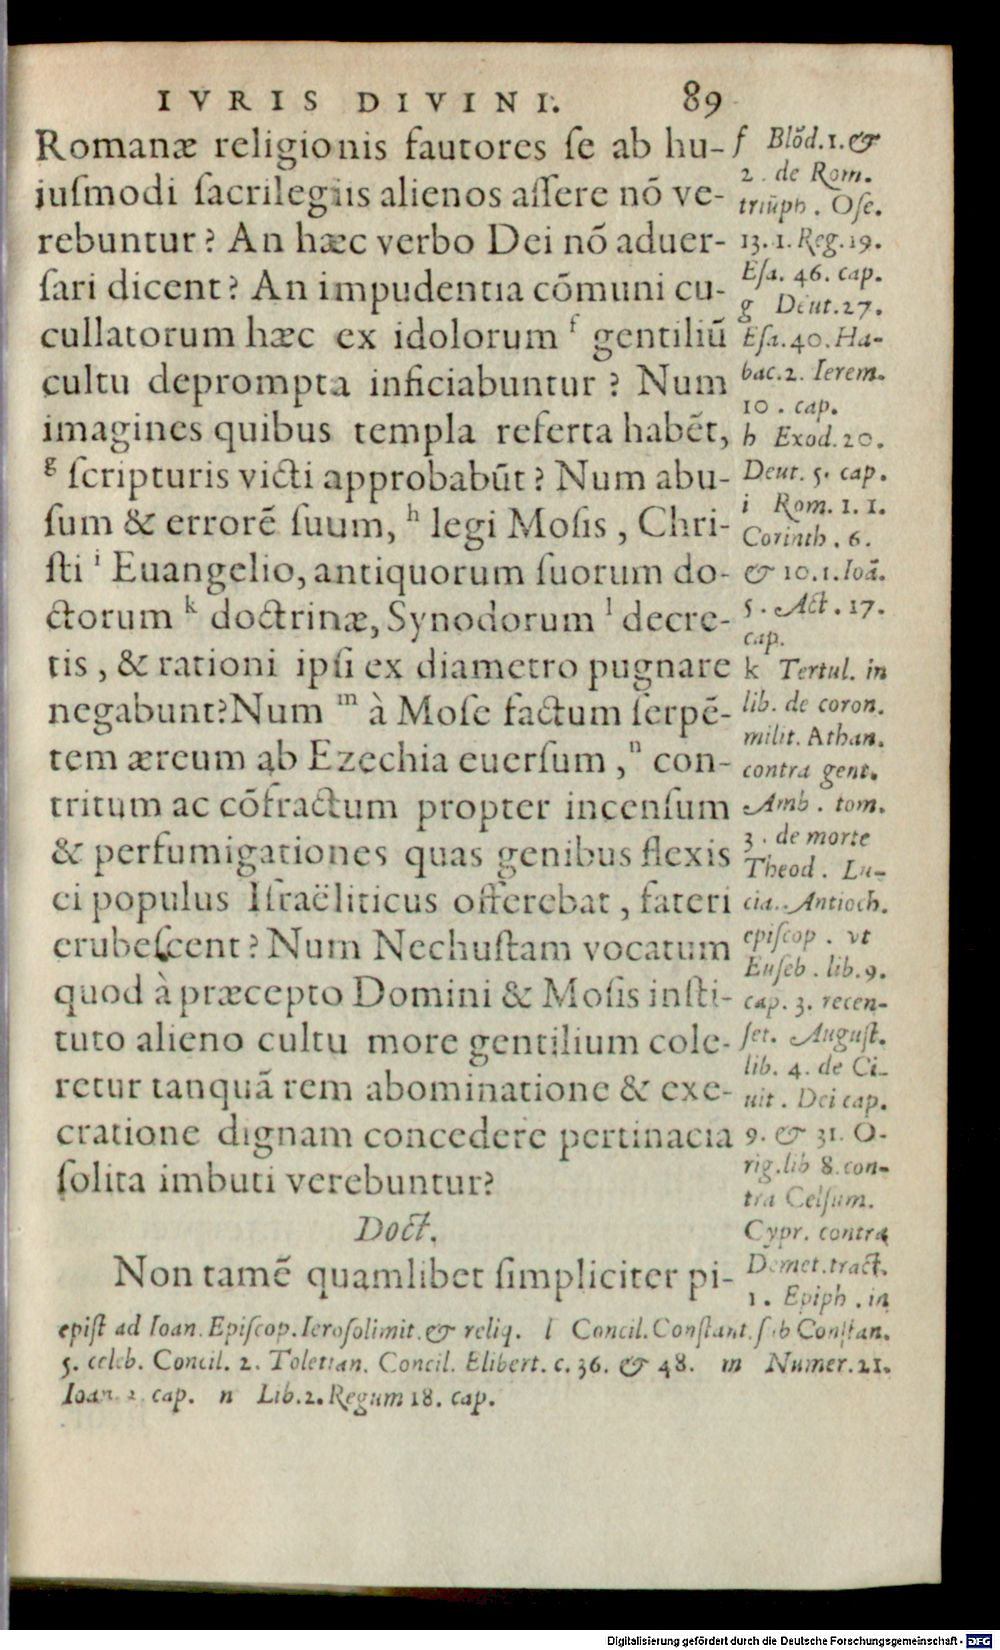 IVRIS DIVINI. 89
Romanæ religionis fautores se ab hu-
iusmodi sacrilegiis alienos assere nō ve-
rebuntur? An hæc verbo Dei nō aduer-
sari dicent? An impudentia cōmuni cu-
cullatorum hæc ex idolorum f gentiliū
cultu deprompta inficiabuntur? Num
imagines quibus templa referta habēt,
g scripturis victi approbabūt? Num abu-
sum & errorē suum, h legi Mosis, Chri-
sti i Euangelio, antiquorum suorum do-
ctorum k doctrinæ, Synodorum l decre-
tis, & rationi ipsi ex diametro pugnare
negabunt? Num m à Mose factum serpē-
tem æreum ab Ezechia euersum, n con-
tritum ac cōfractum propter incensum
& perfumigationes quas genibus flexis
ei populus Israëliticus offerebat, fateri
erubescent? Num Nechustam vocatum
quod à præcepto Domini & Mosis insti-
tuto alieno cultu more gentilium cole-
retur tanquā rem abominatione & exe-
cratione dignam concedere pertinacia
solita imbuti verebuntur?
Doct.
Non tamē quamlibet simpliciter pi-
f Blōd. 1. &
2. de Rom.
triūph. Ose.
13. 1. Reg. 19.
Esa. 46. cap.
g Deut. 27.
Esa. 40. Ha-
bac. 2. Ierem.
10. cap.
h Exod. 20.
Deut. 5. cap.
i Rom. 1. 1.
Corinth. 6.
& 10. 1. Ioā.
5. Act. 17.
cap.
k Tertul. in
lib. de coron.
milit. Athan.
contra gent.
Amb. tom.
3. de morte
Theod. Lu-
cia. Antioch.
episcop. vt
Euseb. lib. 9.
cap. 3. recen-
set. August.
lib. 4. de Ci-
uit. Dei cap.
9. & 31. O-
rig. lib 8. con-
tra Celsum.
Cypr. contra
Demet. tract.
1. Epiph. in
epist ad Ioan. Episcop. Ierosolimit. & reliq. l Concil. Constant. sub Constan.
5. celeb. Concil. 2. Toletan. Concil. Elibert. c. 36. & 48. m Numer. 21.
Ioan 2 cap. n Lib. 2. Regum 18. cap.
Digitalisierung gefördert durch die Deutsche Forschungsgemeinschaft - DFG